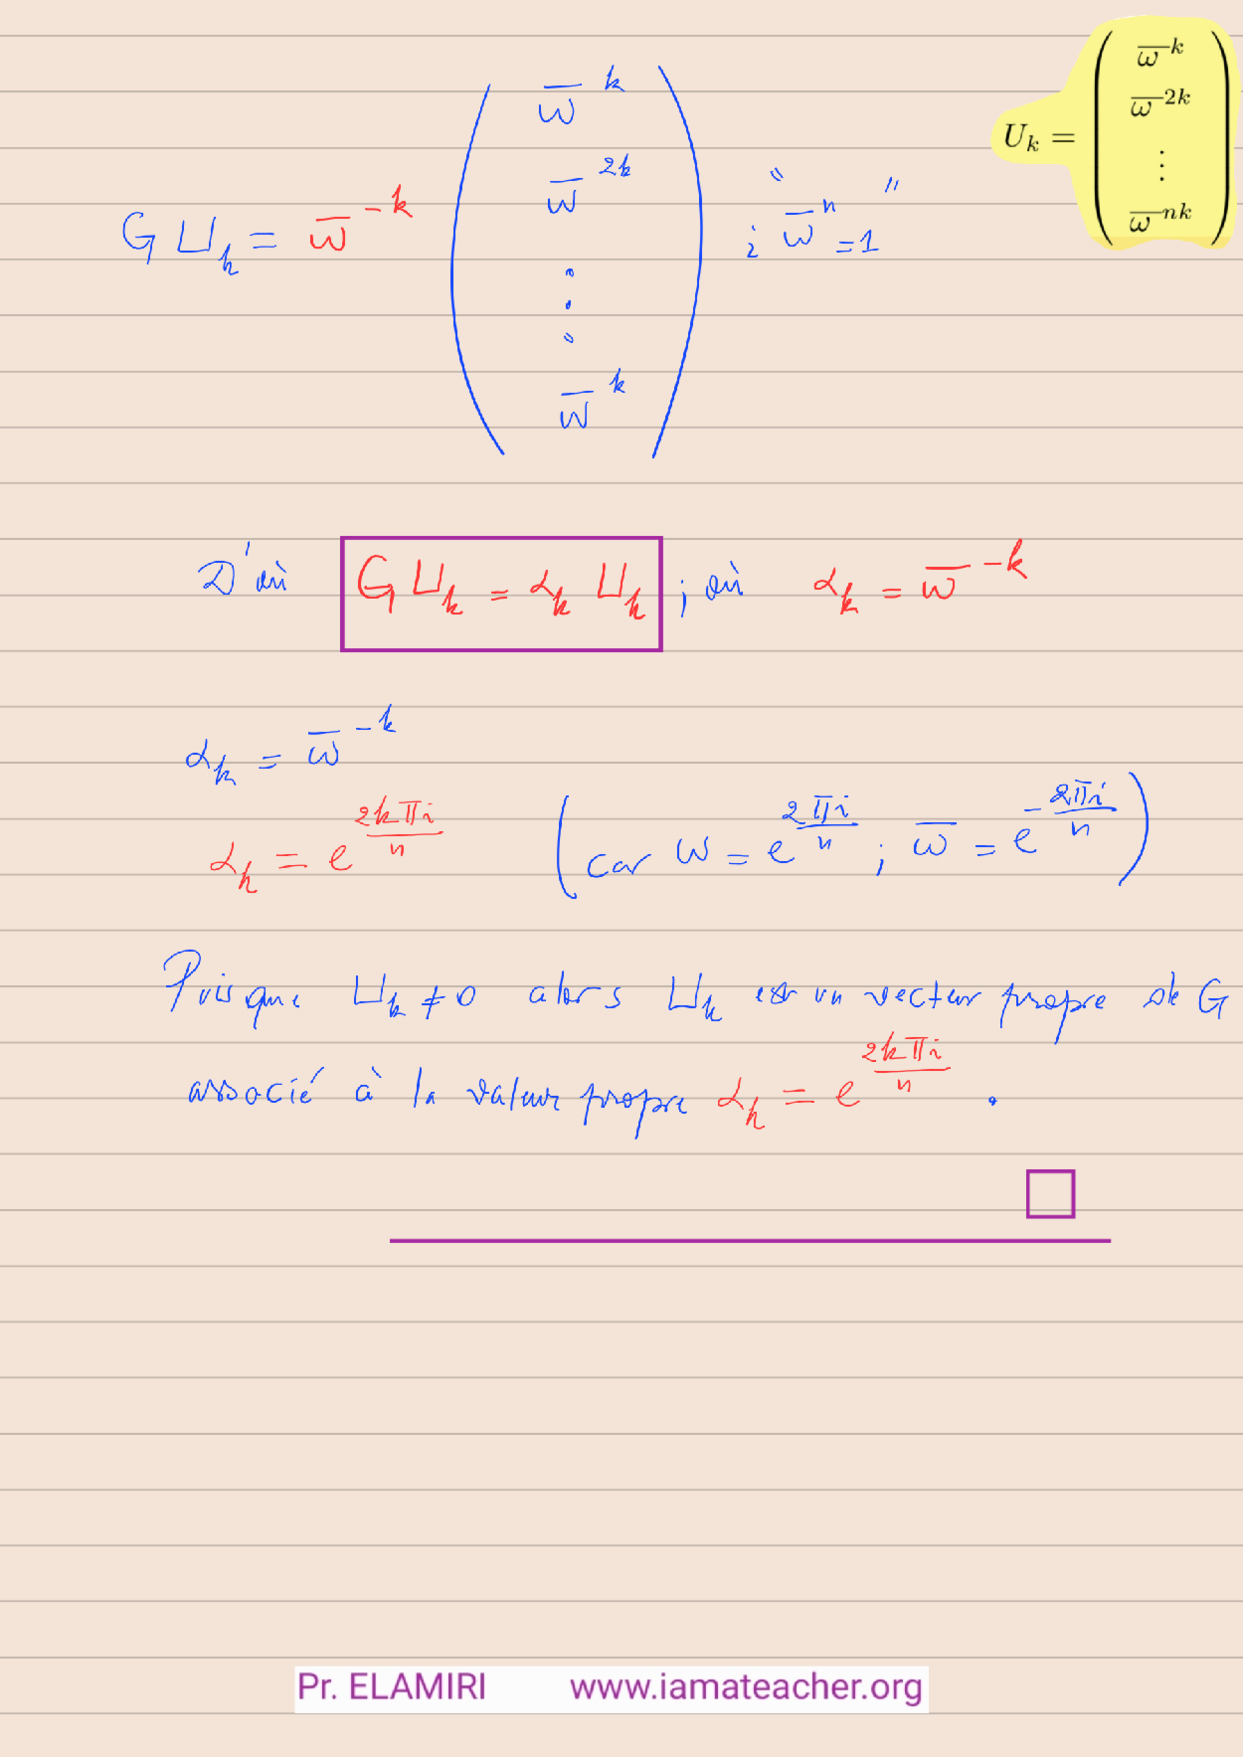 G U_k = ω̄^{-k} ( ω̄^k ; ω̄^{2k} ; ⋮ ; ω̄^k ) ; " ω̄^n = 1 "
U_k = ( ω̄^k ; ω̄^{2k} ; ⋮ ; ω̄^{nk} )
D'où G U_k = α_k U_k ; où α_k = ω̄^{-k}
α_k = ω̄^{-k}
α_k = e^{2kπi/n} ( car ω = e^{2πi/n} ; ω̄ = e^{-2πi/n} )
Puisque U_k ≠ 0 alors U_k est un vecteur propre de G
associé à la valeur propre α_k = e^{2kπi/n} .
Pr. ELAMIRI www.iamateacher.org